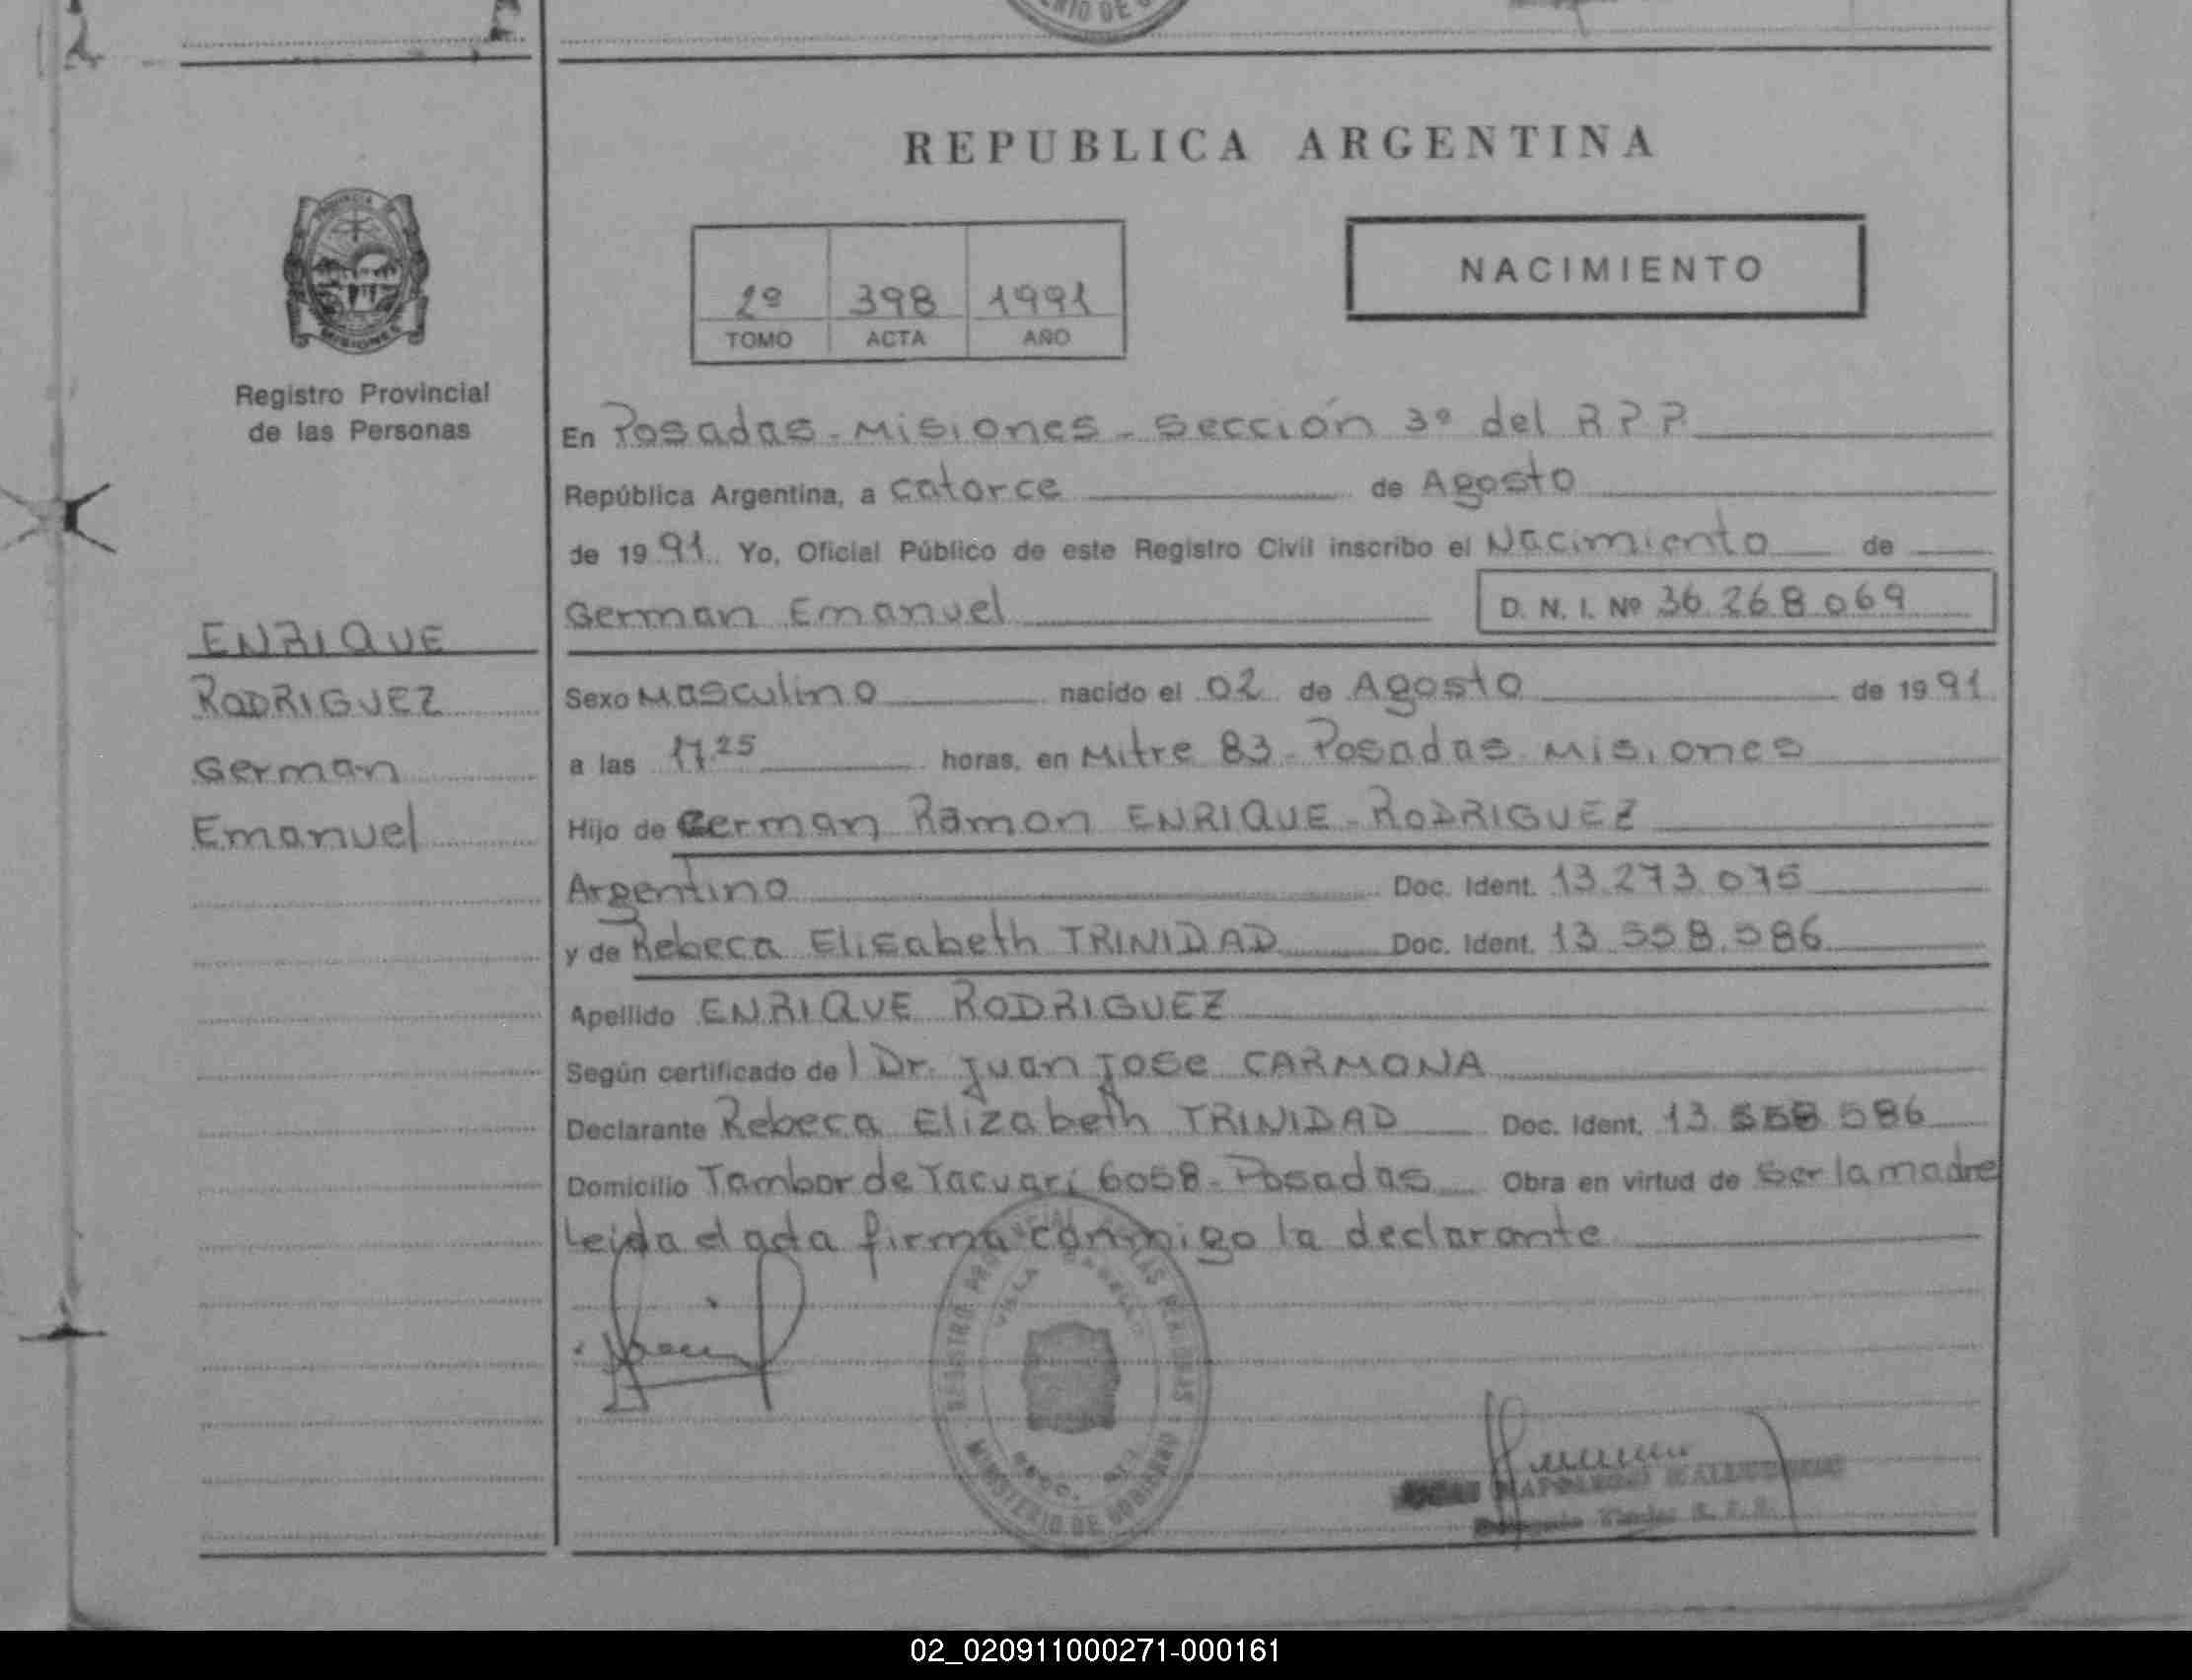 REPUBLICA ARGENTINA
NACIMIENTO
2º 398 1991
TOMO ACTA AÑO
Registro Provincial
de las Personas
ENRIQUE
RODRIGUEZ
German
Emanuel
En Posadas - Misiones - sección 3º del R P P
República Argentina, a catorce de Agosto
de 1991. Yo, Oficial Público de este Registro Civil inscribo el Nacimiento de
German Emanuel D. N. I. Nº 36.268.069
Sexo Masculino nacido el 02 de Agosto de 1991
a las 17.25 horas, en Mitre 83 - Posadas - Misiones
Hijo de German Ramon ENRIQUE - RODRIGUEZ
Argentino Doc. Ident. 13.273.075
y de Rebeca Elisabeth TRINIDAD Doc. Ident. 13.558.586
Apellido ENRIQUE RODRIGUEZ
Según certificado de l Dr. Juan Jose CARMONA
Declarante Rebeca Elizabeth TRINIDAD Doc. Ident. 13.558.586
Domicilio Tambor de Tacuarí 6058 - Posadas Obra en virtud de ser la madre
Leida el acta firma conmigo la declarante
REGISTRO PROVINCIAL DE LAS PERSONAS
MINISTERIO DE GOBIERNO
VILLA
02_020911000271-000161